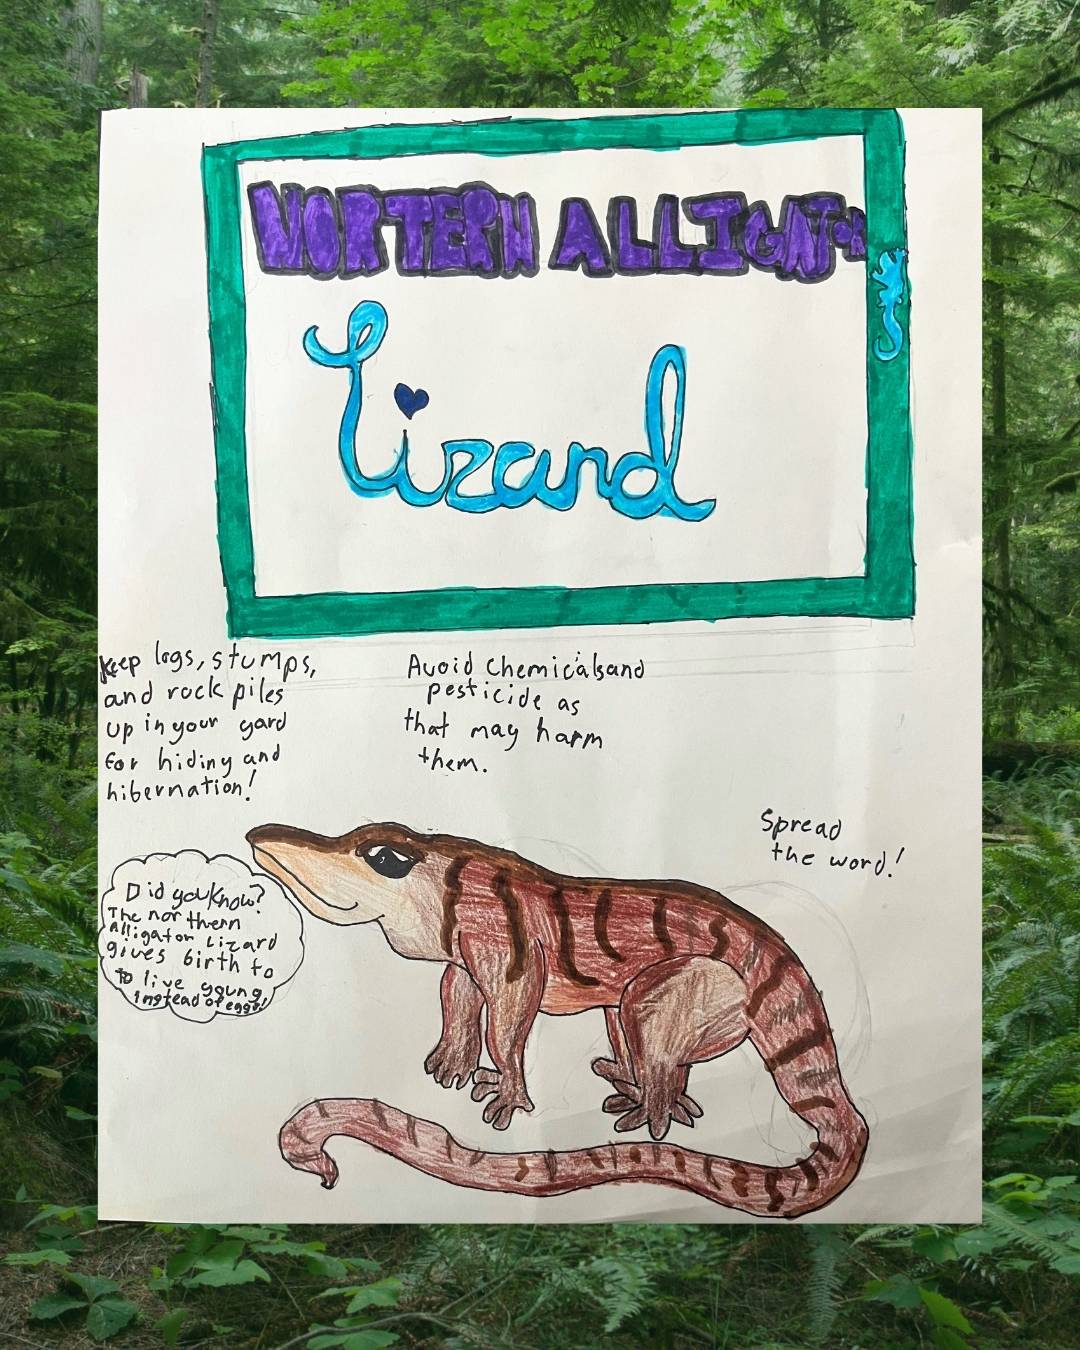 NORTERN ALLIGATOR
Lizard
Keep logs, stumps,
and rock piles
up in your yard
for hiding and
hibernation!
Avoid chemicals and
pesticide as
that may harm
them.
Spread
the word!
Did you know?
The northern
Alligator Lizard
gives birth to
to live young
instead of eggs!